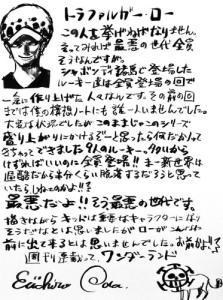 トラファルガー・ロー
この人を挙げねばなりません。
そして言わば最悪の世代全員
そうなんですが。
シャボンディ諸島で登場した
ルーキー達は全員登場の回で
一気に作り上げた人なんです。その前の回
までは僕の構想ノートにも誰一人いませんでした。
大変な状況でしたが このままじゃこのシリーズ
盛り上がりにかけるぞーと思ったら何だかんだ
できちゃってきました9人のルーキー。9人いから
1人ばればいいのに全員登場!!まー新世界は
過酷だから半分くらい脱落するだろうと思って
いたらしぶといのなかよ!!
最悪だよ!!そう最悪の世代です。
描きながら キッドは重要なキャラクターになり
そうだなとは思いましたが ローがこんなにも
前に出て来るとは思いませんでした。お前かよ!!と
週刊連載って、ワンダーランド
Eiichiro Oda.